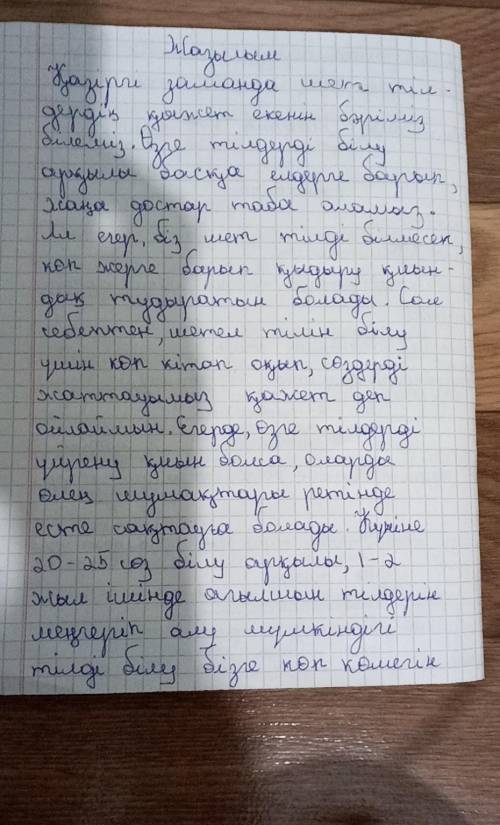 Жазылым
Қазіргі заманда шет тіл-
дердің қажет екенін бәріміз
білеміз. Өзге тілдерді білу
арқылы басқа елдерге барып,
жаңа достар таба аламыз.
Ал егер, біз шет тілді білмесек,
көп жерге барып қыдыру қиын-
дық тудыратын болады. Сол
себептен, шетел тілін білу
үшін көп кітап оқып, сөздерді
жаттауымыз қажет деп
ойлаймын. Егерде, өзге тілдерді
үйрену қиын болса, оларды
өлең шумақтары ретінде
есте сақтауға болады. Күніне
20-25 сөз білу арқылы, 1-2
жыл ішінде ағылшын тілдерін
меңгеріп алу мүмкіндігі
тілді білу бізге көп көмегін